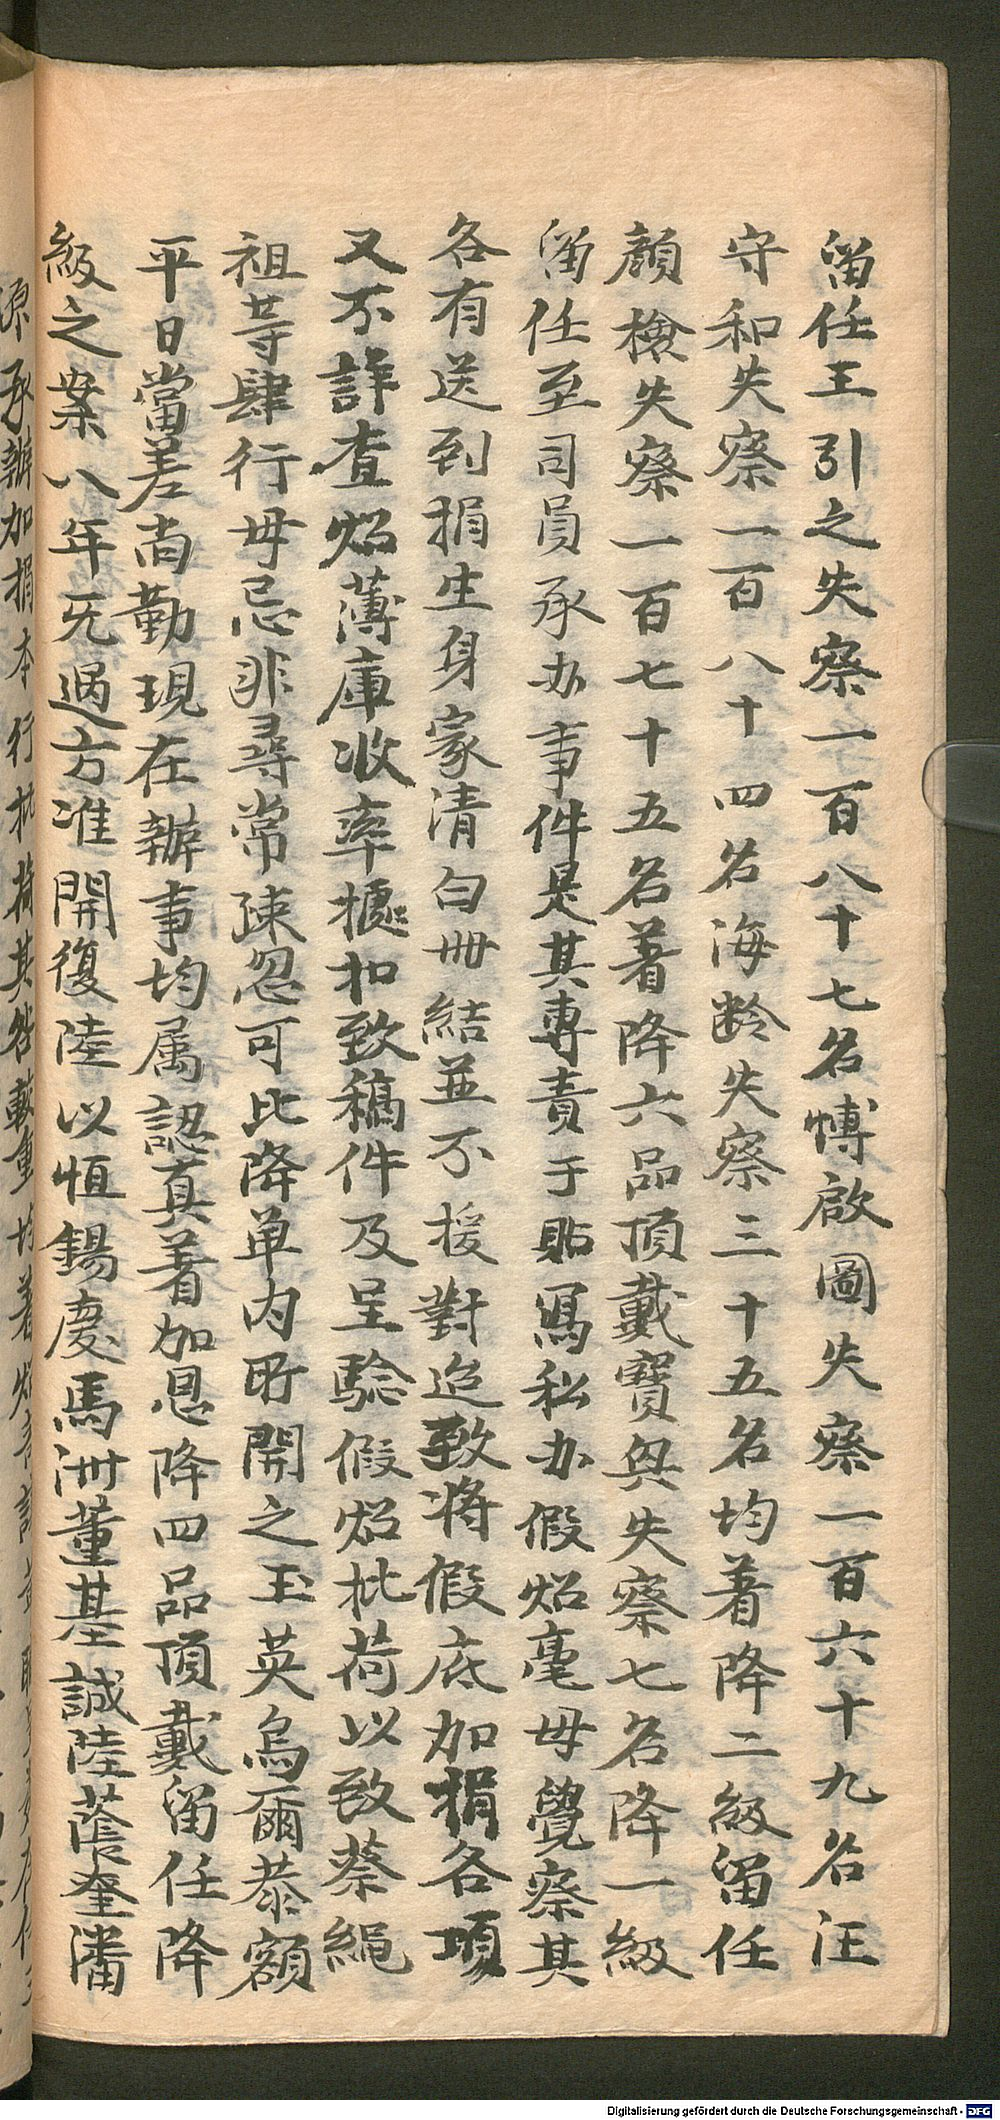 留任王引之失察一百八十七名愽啟圖失察一百六十九名汪
守和失察一百八十四名海齡失察三十五名均著降二級留任
顏檢失察一百七十五名著降六品頂戴寶興失察七名降一級
留任至司員承办事件是其專責于貼寫私办假炤毫毋覺察其
各有送到捐生身家清白冊結並不援對迨致將假底加捐各項
又不詳查炤薄庫收率換扣致稿件及呈騐假炤批荷以致蔡繩
祖等肆行毋忌非尋常疎忽可比降单內所開之玉英烏爾恭額
平日當差尚勤現在辦事均属認真著加恩降四品頂戴留任降
級之案八年旡過方准開復陸以恒錫慶馬洲董基誠陸蔭奎潘
承辦加捐本行批其咎較重均著
Digitalisierung gefördert durch die Deutsche Forschungsgemeinschaft - DFG